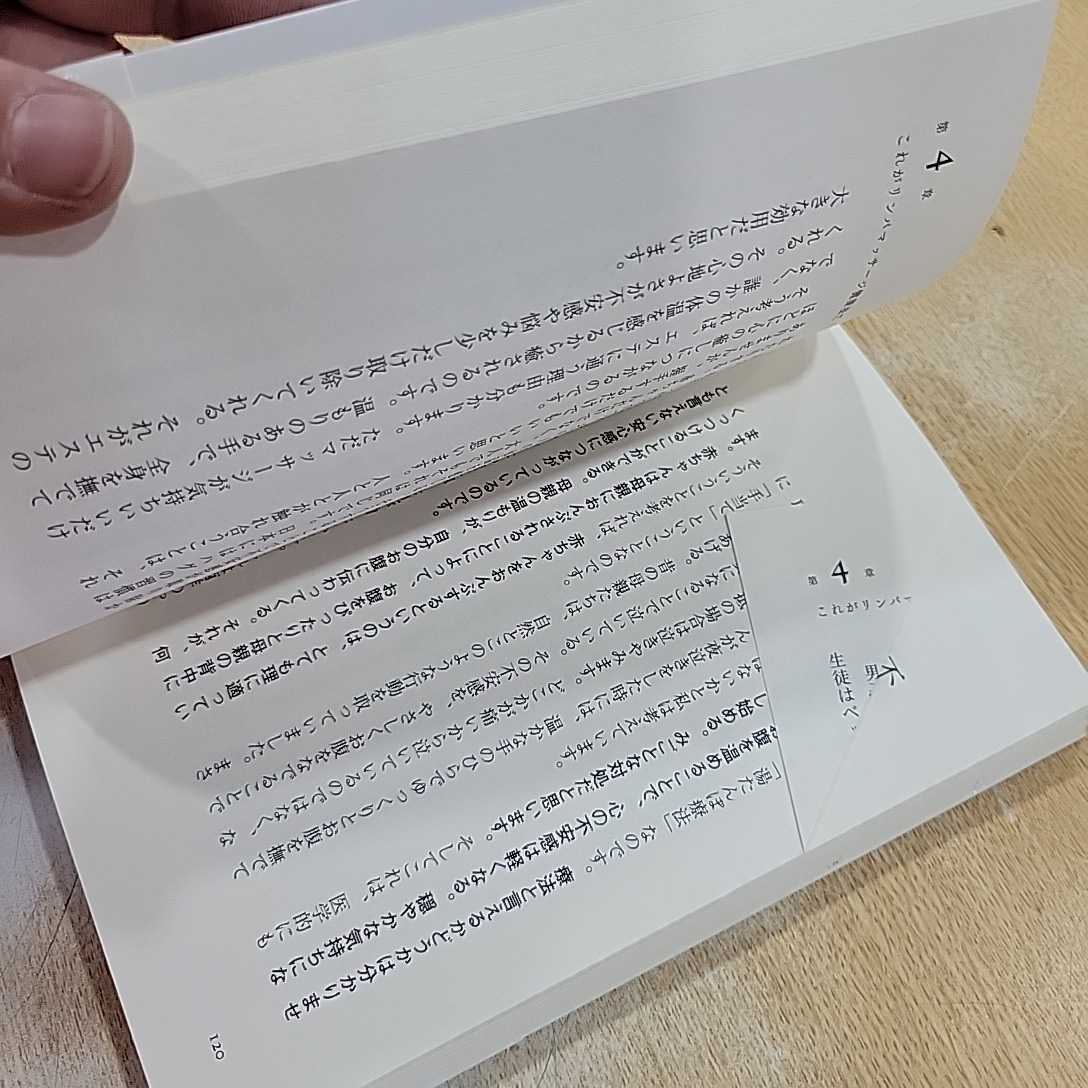 「湯たんぽ療法」なのです。療法と言えるかどうかは分かりませ
お腹を温めることで、心の不安感は軽くなる。穏やかな気持ちにな
し始める。みごとな対処だと思います。そしてこれは、医学的にも
はないかと私は考えています。
んが夜泣きをした時には、温かな手のひらでゆっくりとお腹を撫でて
の場合は泣きやみます。どこかが痛いから泣いているのではなく、な
になることで泣いている。その不安感を、やさしくお腹をなでることで
あげる。昔の母親たちは、自然とこのような行動を取っていました。まさ
に「手当て」ということなのです。
そういうことを考えれば、赤ちゃんをおんぶするというのは、とても理に適ってい
ます。赤ちゃんは母親におんぶされることによって、お腹をぴったりと母親の背中に
くっつけることができる。母親の温もりが、自分のお腹に伝わってくる。それが、何
とも言えない安心感につながっているのです。
120
第4章
これがリンパ
男
生徒は
第4章
これがリンパマッサージ
癒しにつながるのです。
そう考えれば、エステに通う理由も分かります。ただマッサージが気持ちいいだけ
でなく、誰かの体温を感じるから癒されるのです。温もりのある手で、全身を撫でて
くれる。その心地よさが不安感や悩みを少しだけ取り除いてくれる。それがエステの
大きな効用だと思います。